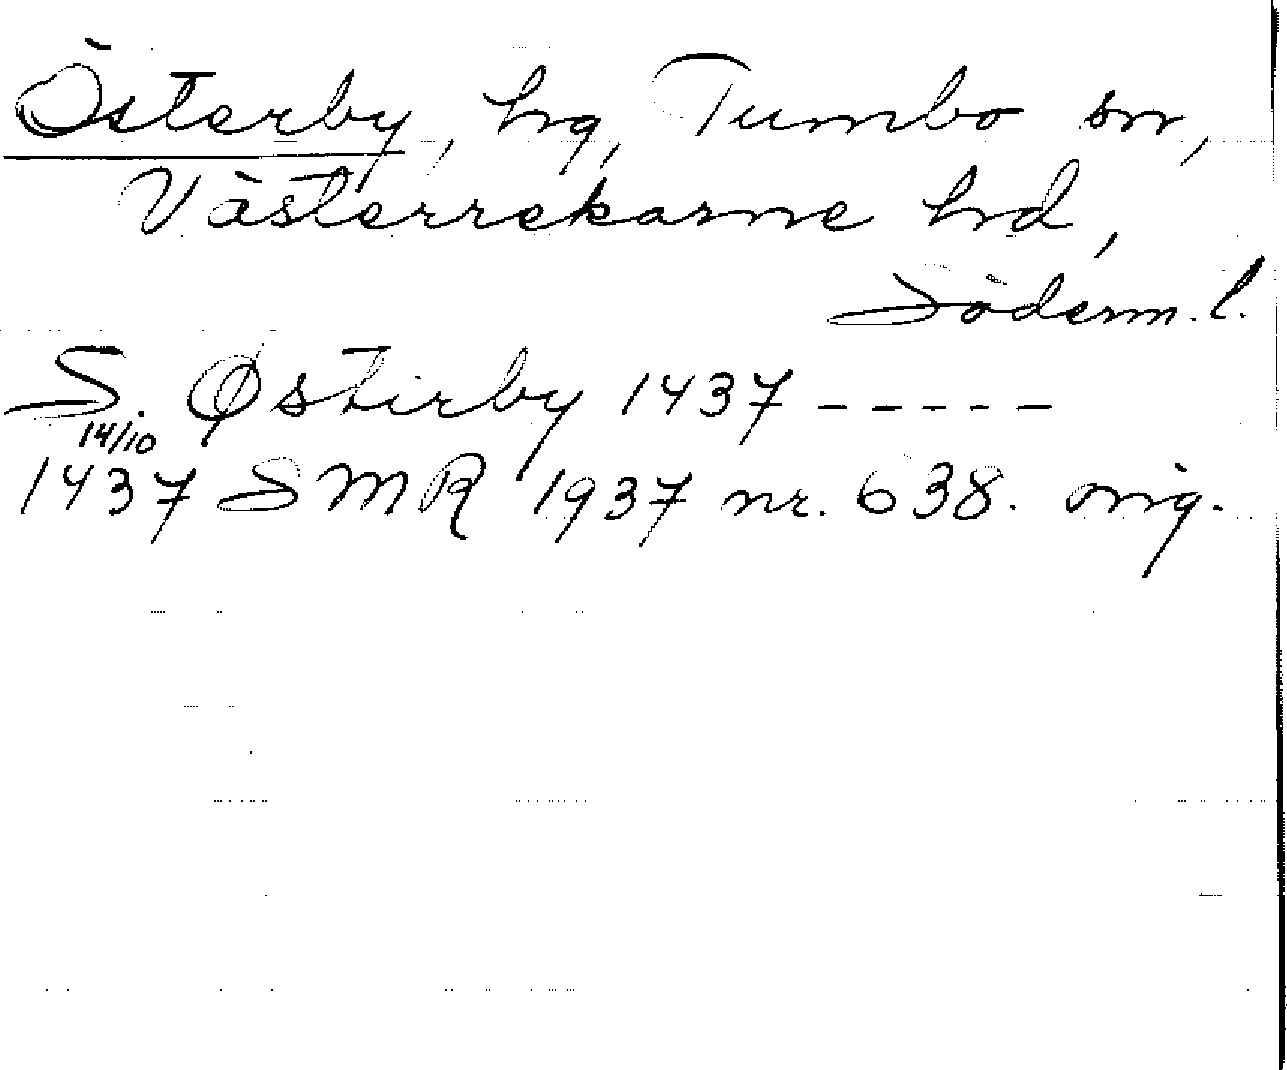 Österby, hg, Tumbo sn,
Västerrekarne hd,
Söderm. l.
S. Østirby 1437 - - - - -
14/10
1437 SMR 1937 nr. 638. orig.